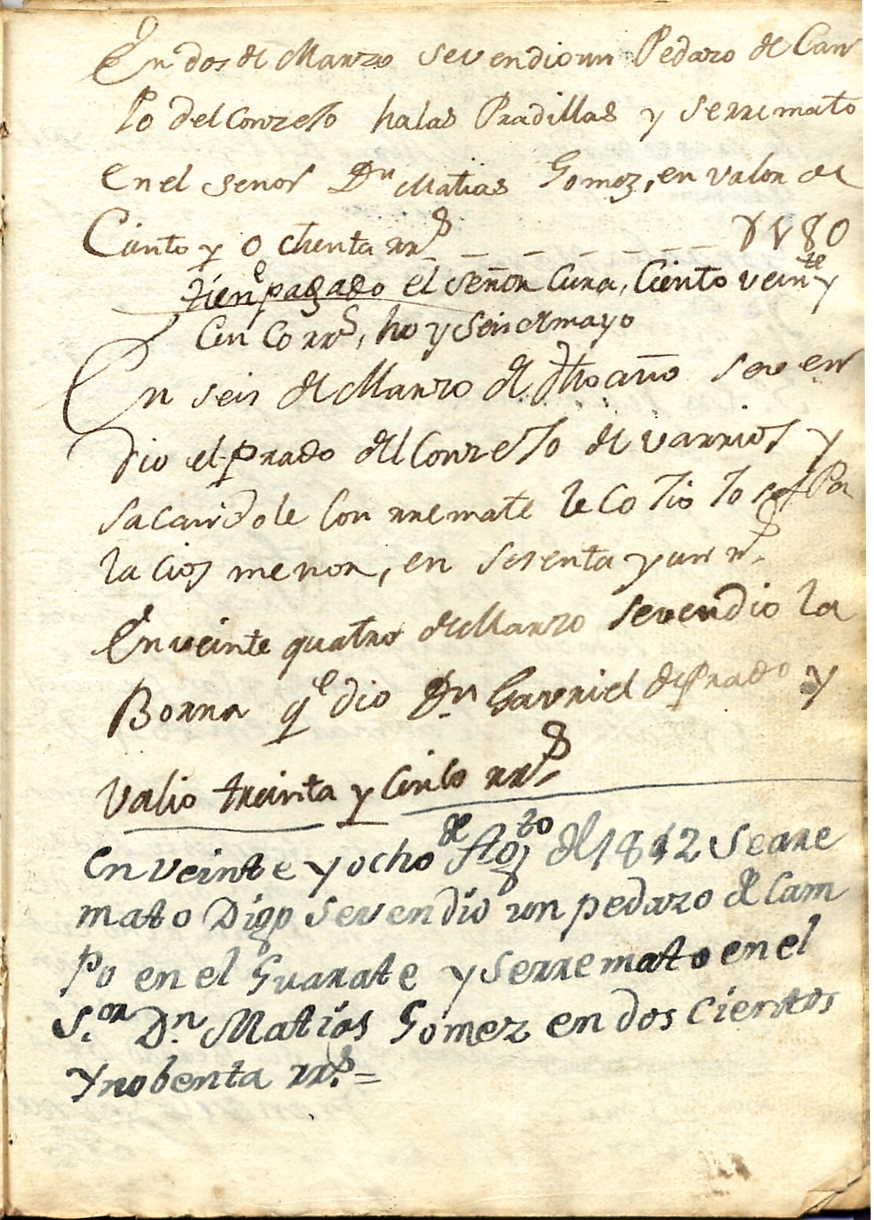 En dos de Marzo se vendio un Pedazo de Can
Po del Conzejo halas Pradillas y serremato
en el señor Dn Matias Gomez, en valor de
Ciento y ochenta rrs _ _ _ _ _ 180
tiene pagado el señor Cura, Ciento veinte y
Cinco rrs, hoy seis de mayo
En seis de Marzo de dho año se ven
dio el prado del Conzejo de varrios y
sacandole con rremate le cojio Josef Pa
lacios menor, en sesenta y un rs.
En veinte quatro de Marzo se vendio la
Borra qe dio Dn Gavriel de Prado y
valio treinta y cinco rrs
en veinte y ocho de Agto del 1812 se arre
mato Digo se vendio un pedazo de Cam
po en el Guarate y serremato en el
S.or D.n Matias Gomez en dos cientos
y nobenta rrs. =